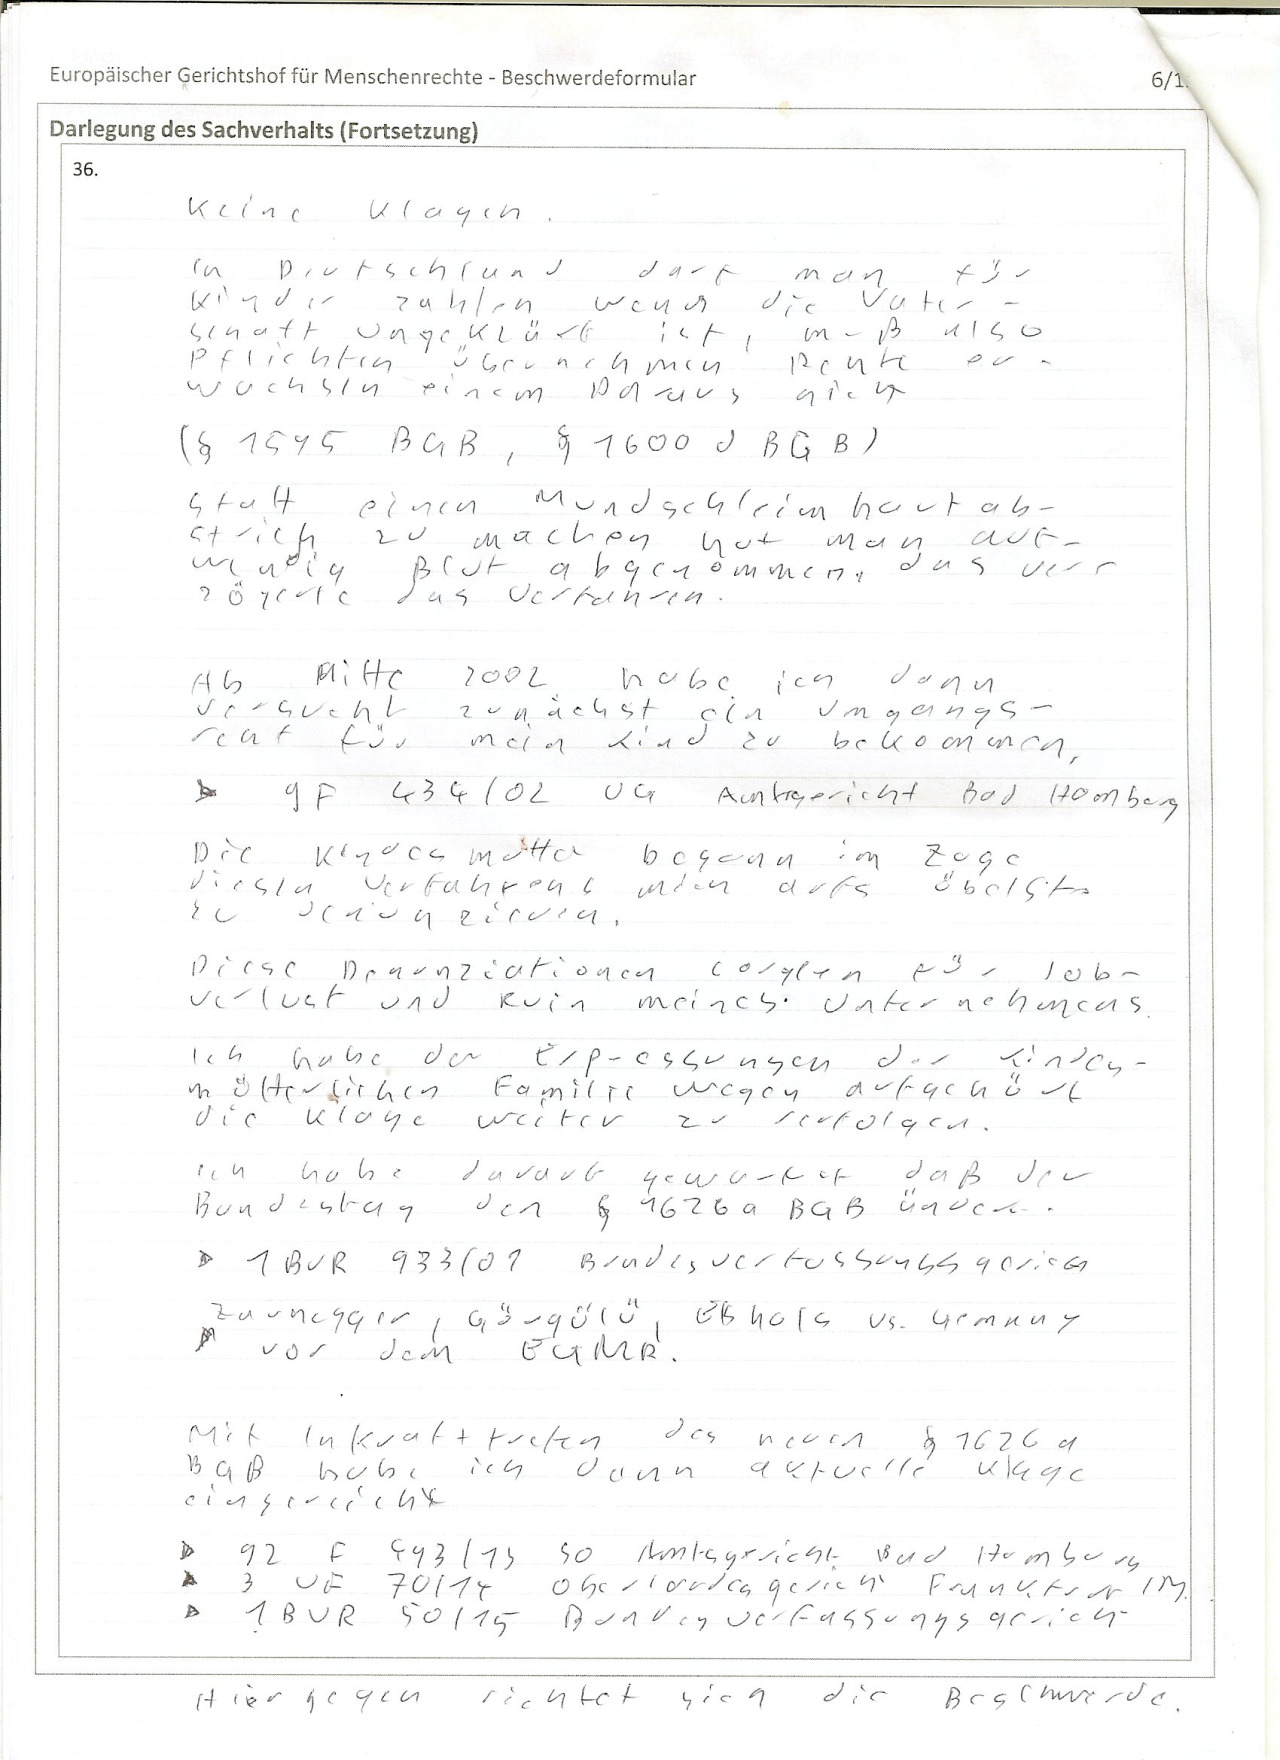 Europäischer Gerichtshof für Menschenrechte - Beschwerdeformular
6/1
Darlegung des Sachverhalts (Fortsetzung)
36.
Keine Klagen.
In Deutschland darf man für
Kinder zahlen wenn die Vater-
schaft ungeklärt ist, muß also
Pflichten übernehmen Rechte er-
wachsen einem Daraus nicht
(§ 1595 BGB, § 1600 d BGB)
Statt einen Mundschleimhautab-
strich zu machen hat man auf-
wendig Blut abgenommen, das ver-
zögerte das Verfahren.
Ab Mitte 2002 habe ich dann
versucht zunächst ein Umgangs-
recht für mein Kind zu bekommen,
9F 434/02 UG Amtsgericht Bad Homburg
Die Kindesmutter begann im Zuge
diesen Verfahrens mich aufs übelste
zu denunzieren.
Diese Denunziationen sorgten für Job-
verlust und Ruin meines Unternehmens.
Ich habe der Erpressungen der Kindes-
mütterlichen Familie wegen aufgehört
die Klage weiter zu verfolgen.
Ich habe darauf gewartet daß der
Bundestag den § 1626a BGB ändert.
1 BVR 933/01 Bundesverfassungsgericht
Zaunegger, Görgülü, Elsholz vs. Germany
vor dem EGMR.
Mit Inkrafttreten des neuen § 1626a
BGB habe ich dann aktuelle Klage
eingereicht
92 F 493/13 SO Amtsgericht Bad Homburg
3 UF 70/14 Oberlandesgericht Frankfurt /M.
1 BVR 50/15 Bundesverfassungsgericht
Hiergegen richtet sich die Beschwerde.